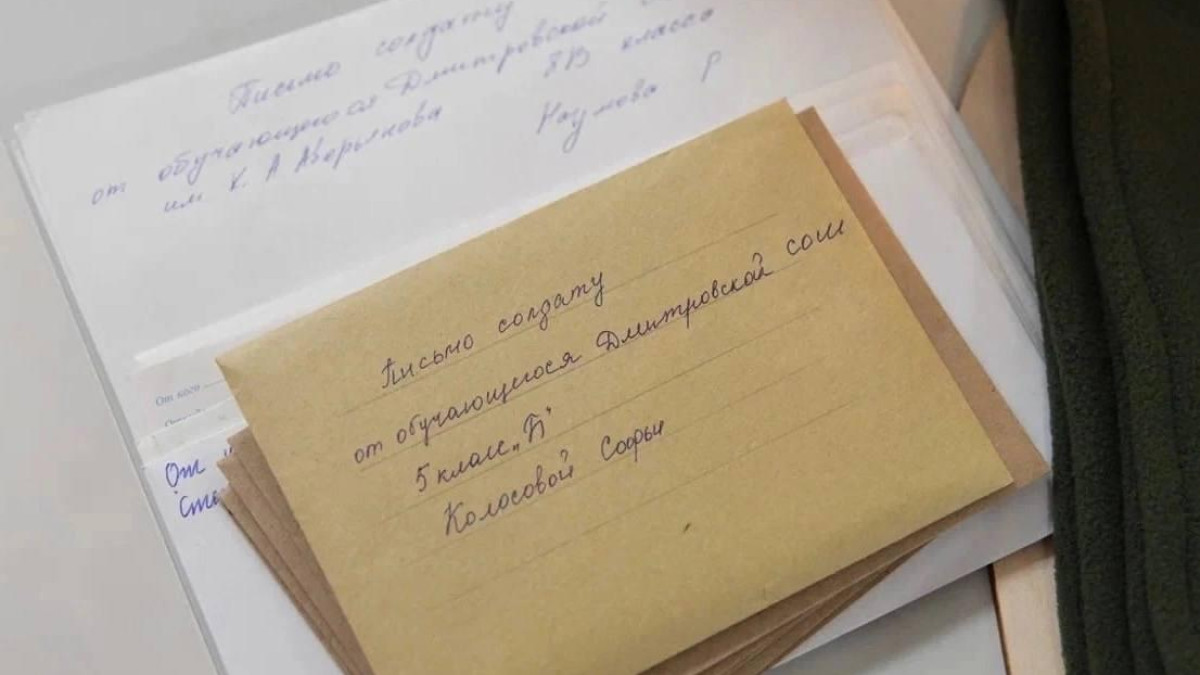 Письмо солдату
от обучающегося Дмитровской
им. К. А Аверьянова 8В класса
Наумова Р
От кого
От
Письмо солдату
от обучающегося Дмитровской сош
5 класс „Б"
Колосовой Софьи